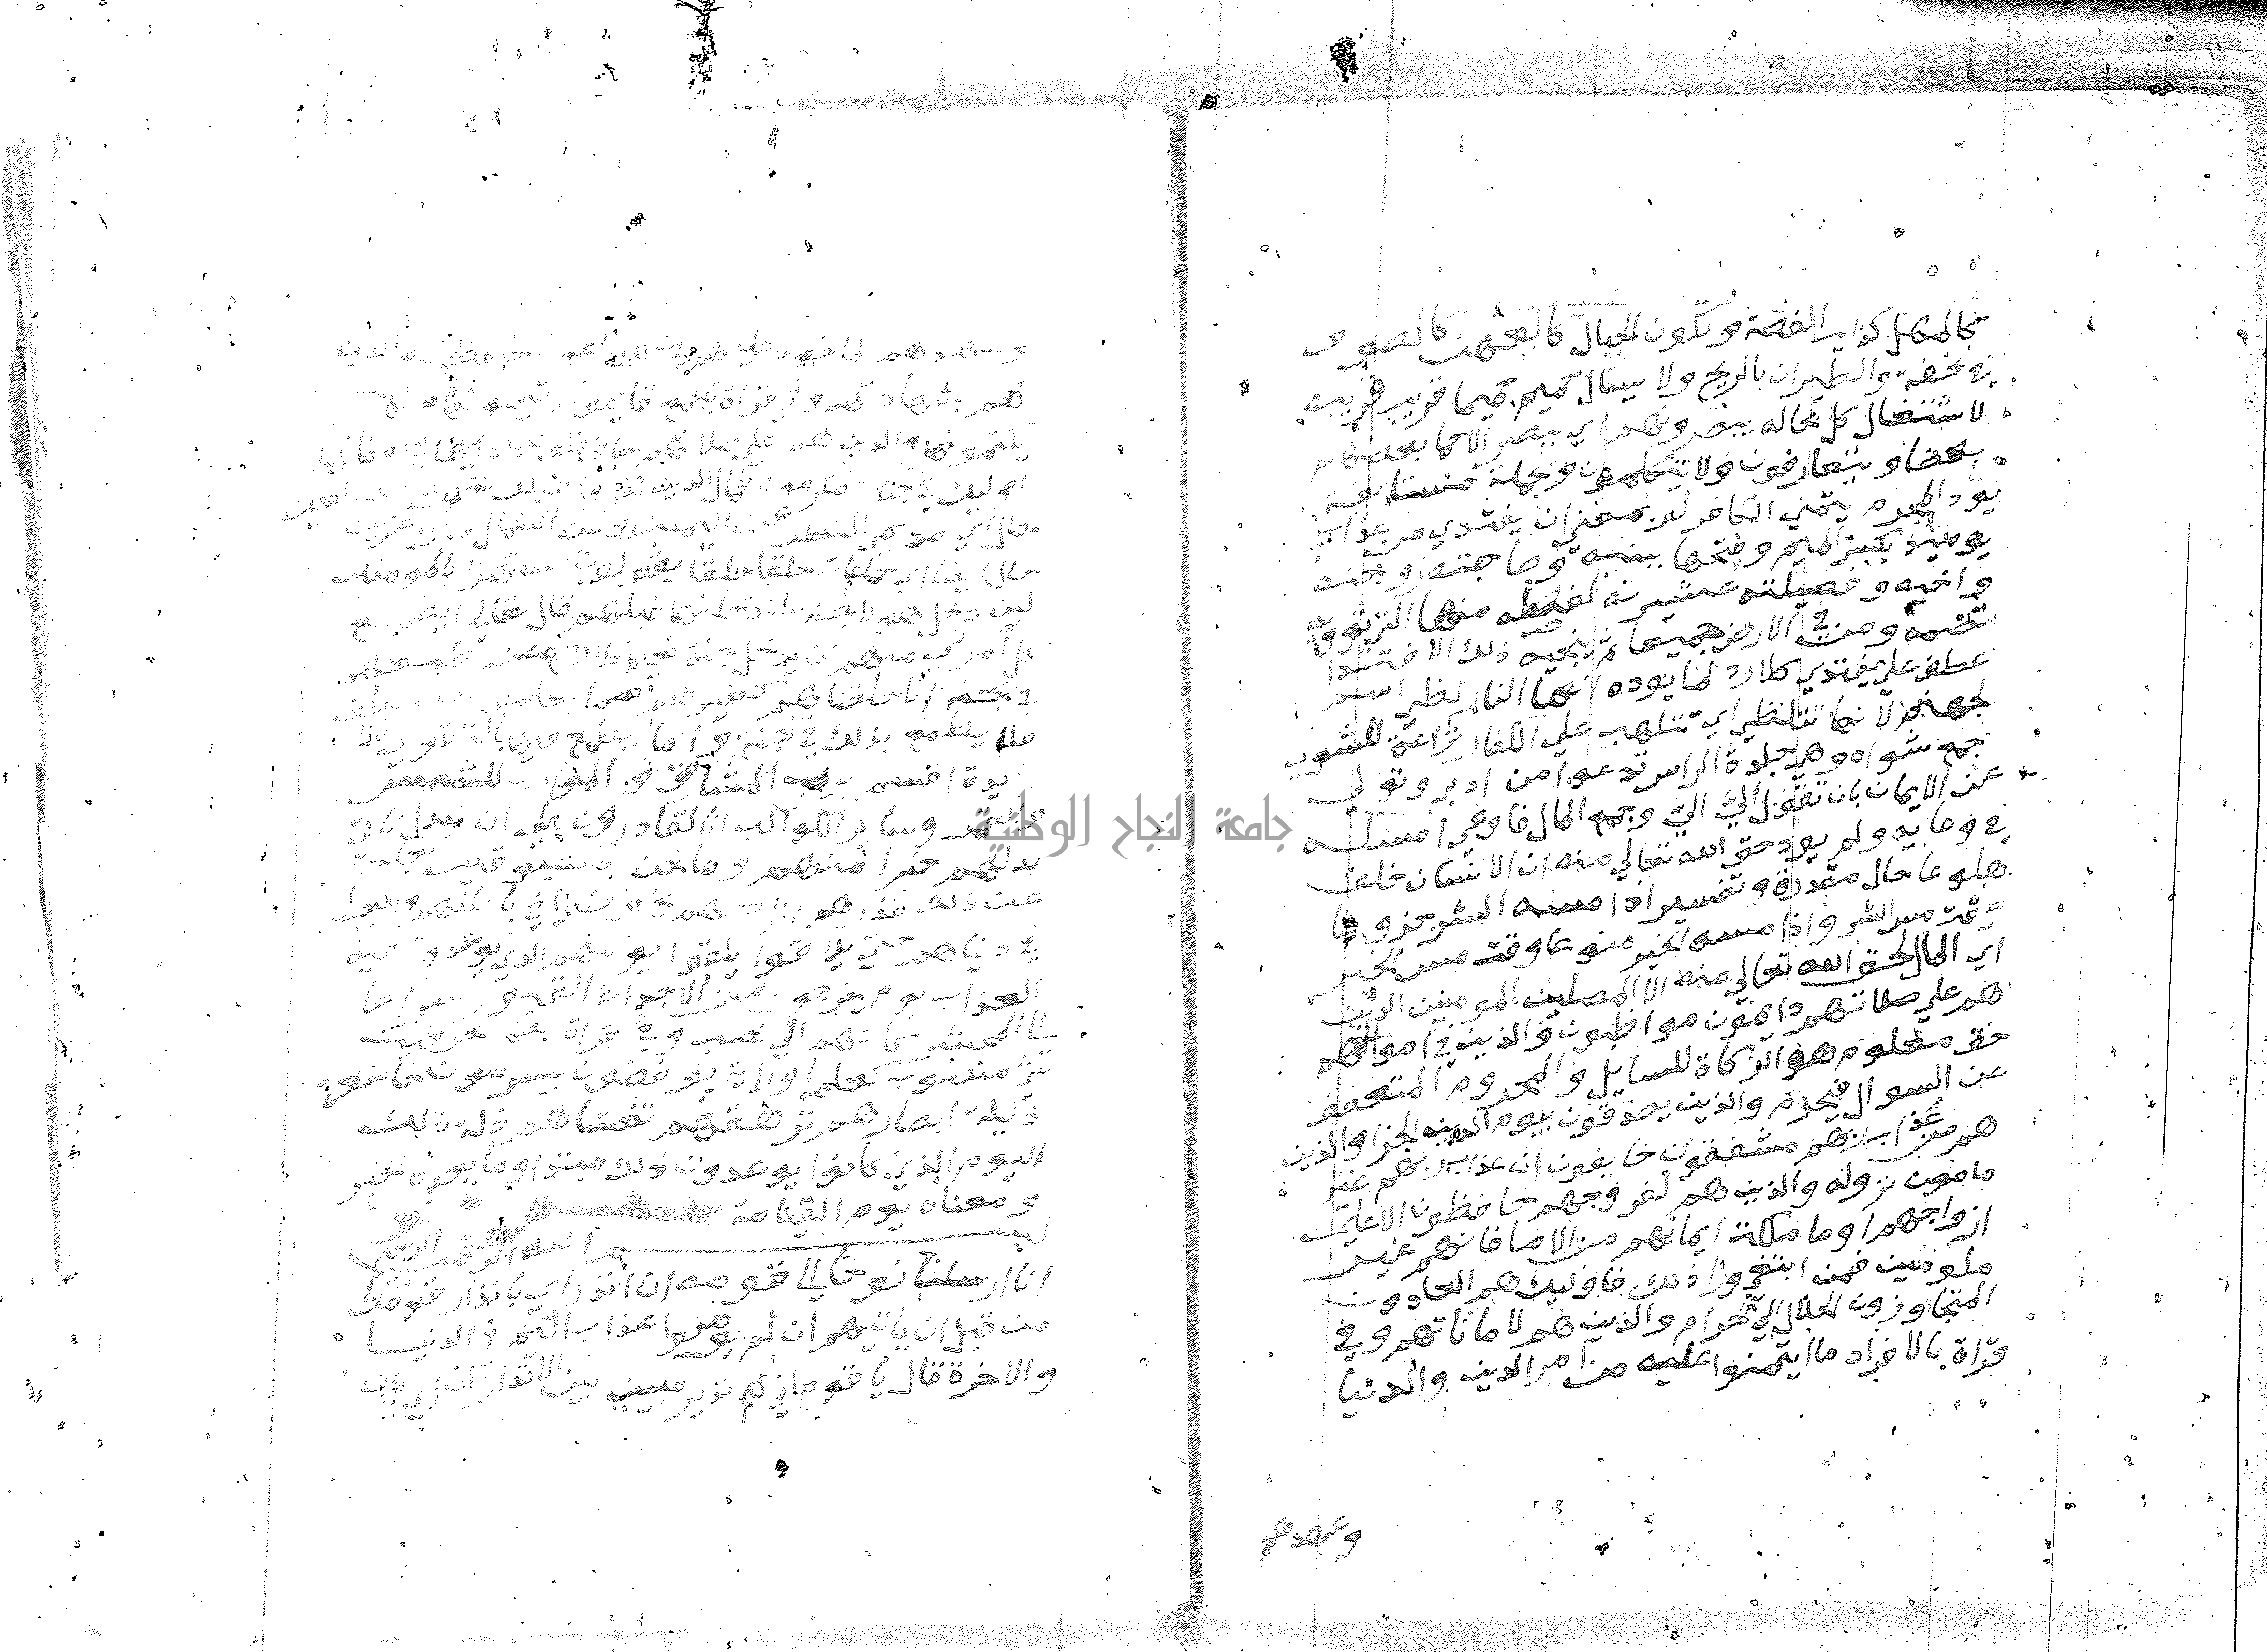 كالمهل كذايب الفضة وتكون الجبال كالعهن كالصوف
في الخفة والطيران بالريح ولا يسال حميم حميما قريب قريبه
لاشتغال كل بحاله يبصرونهم اي يبصر الاحما بعضهم
بعضا ويتعارفون ولا يتكلمون وجملة مستانفة
يود المجرم يتمني الكافر لو بمعني ان يفتدي من عذاب
يوميذ بكسر الميم وفتحها ببنيه وصاحبته زوجته
واخيه وفصيلته عشيرته لفصله منها التي توويه
تضمه ومن في الارض جميعا ثم ينجيه ذلك الافتدا
عطف علي يفتدي كلا رد لما يوده انها النار لظي اسم
لجهنم لانها تتلظي اي تتلهب علي الكفار نزاعة للشوي
جمع شواه وهي جلدة الراس تدعوا من ادبر وتولي
عن الايمان بان تقول الي الي وجمع المال فاوعي امسكه
في وعايه ولم يود حق الله تعالي منه ان الانسان خلق
هلوعا حال مقدرة وتفسيره اذا مسه الشر جزوعا
وقت مس الشر واذا مسه الخير منوعا وقت مس الخير
اي المال لحق الله تعالي منه الا المصلين المومنين الذين
هم علي صلاتهم دايمون مواظبون والذين في اموالهم
حق معلوم هو الزكاة للسايل والمحروم المتعفف
عن السوال فيحرم والذين يصدقون بيوم الدين الجزا والذين
هم من عذاب ربهم مشفقون خايفون ان عذاب ربهم غير
مامون نزوله والذين هم لفروجهم حافظون الا علي
ازواجهم او ما ملكت ايمانهم من الاما فانهم غير
ملومين فمن ابتغي ورا ذلك فاوليك هم العادون
المتجاوزون الحلال الي الحرام والذين هم لاماناتهم وفي
قراة بالافراد ما ايتمنوا عليه من امر الدين والدنيا
وعهدهم
وعهدهم الماخوذ عليهم في ذلك راعون حافظون والذين
هم بشهادتهم وفي قراة بالجمع قايمون يقيمونها ولا
يكتمونها والذين هم علي صلاتهم يحافظون بادايها في اوقاتها
اوليك في جنات مكرمون فمال الذين كفروا قبلك مهطعين
حال اي مديمي النظر عن اليمين وعن الشمال منك عزين
حال ايضا اي جماعات حلقا حلقا يقولون استهزا بالمومنين
لين دخل هولا الجنة لندخلنها قبلهم قال تعالي ايطمع
كل امري منهم ان يدخل جنة نعيم كلا
انا خلقناهم كغيرهم مما يعلمون
فلا يطمع بذلك في الجنة وانما يطمع فيها بالتقوي فلا
زايدة اقسم برب المشارق والمغارب للشمس
والقمر وساير الكواكب انا لقادرون علي ان نبدل ناتي
بدلهم خيرا منهم وما نحن بمسبوقين بعاجزين
عن ذلك فذرهم اتركهم يخوضوا في باطلهم ويلعبوا
في دنياهم حتي يلاقوا يلقوا يومهم الذي يوعدون فيه
العذاب يوم يخرجون من الاجداث القبور سراعا
الي المحشر كانهم الي نصب وفي قراة بضم الحرفين
شي منصوب كعلم او راية يوفضون يسرعون خاشعة
ذليلة ابصارهم ترهقهم تغشاهم ذلة ذلك
اليوم الذي كانوا يوعدون ذلك مبتدا وما بعده الخبر
ومعناه يوم القيامة
بسم الله الرحمن الرحيم
انا ارسلنا نوحا الي قومه ان انذر اي بانذار قومك
من قبل ان ياتيهم ان لم يومنوا عذاب اليم في الدنيا
والاخرة قال يا قوم اني لكم نذير مبين بين الانذار ان اي بان
جامعة النجاح الوطنية